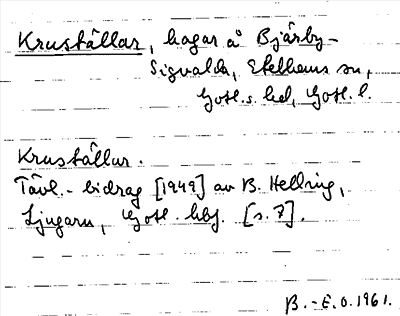 Kruställar, hagar å Bjärby-
Sigvalda, Etelhems sn,
Gotl. s. hd, Gotl. l.
Kruställar.
Tävl.-bidrag [1949] av B. Hellring,
Ljugarn, Gotl. hbg. [s. 7].
B.-E.O. 1961.